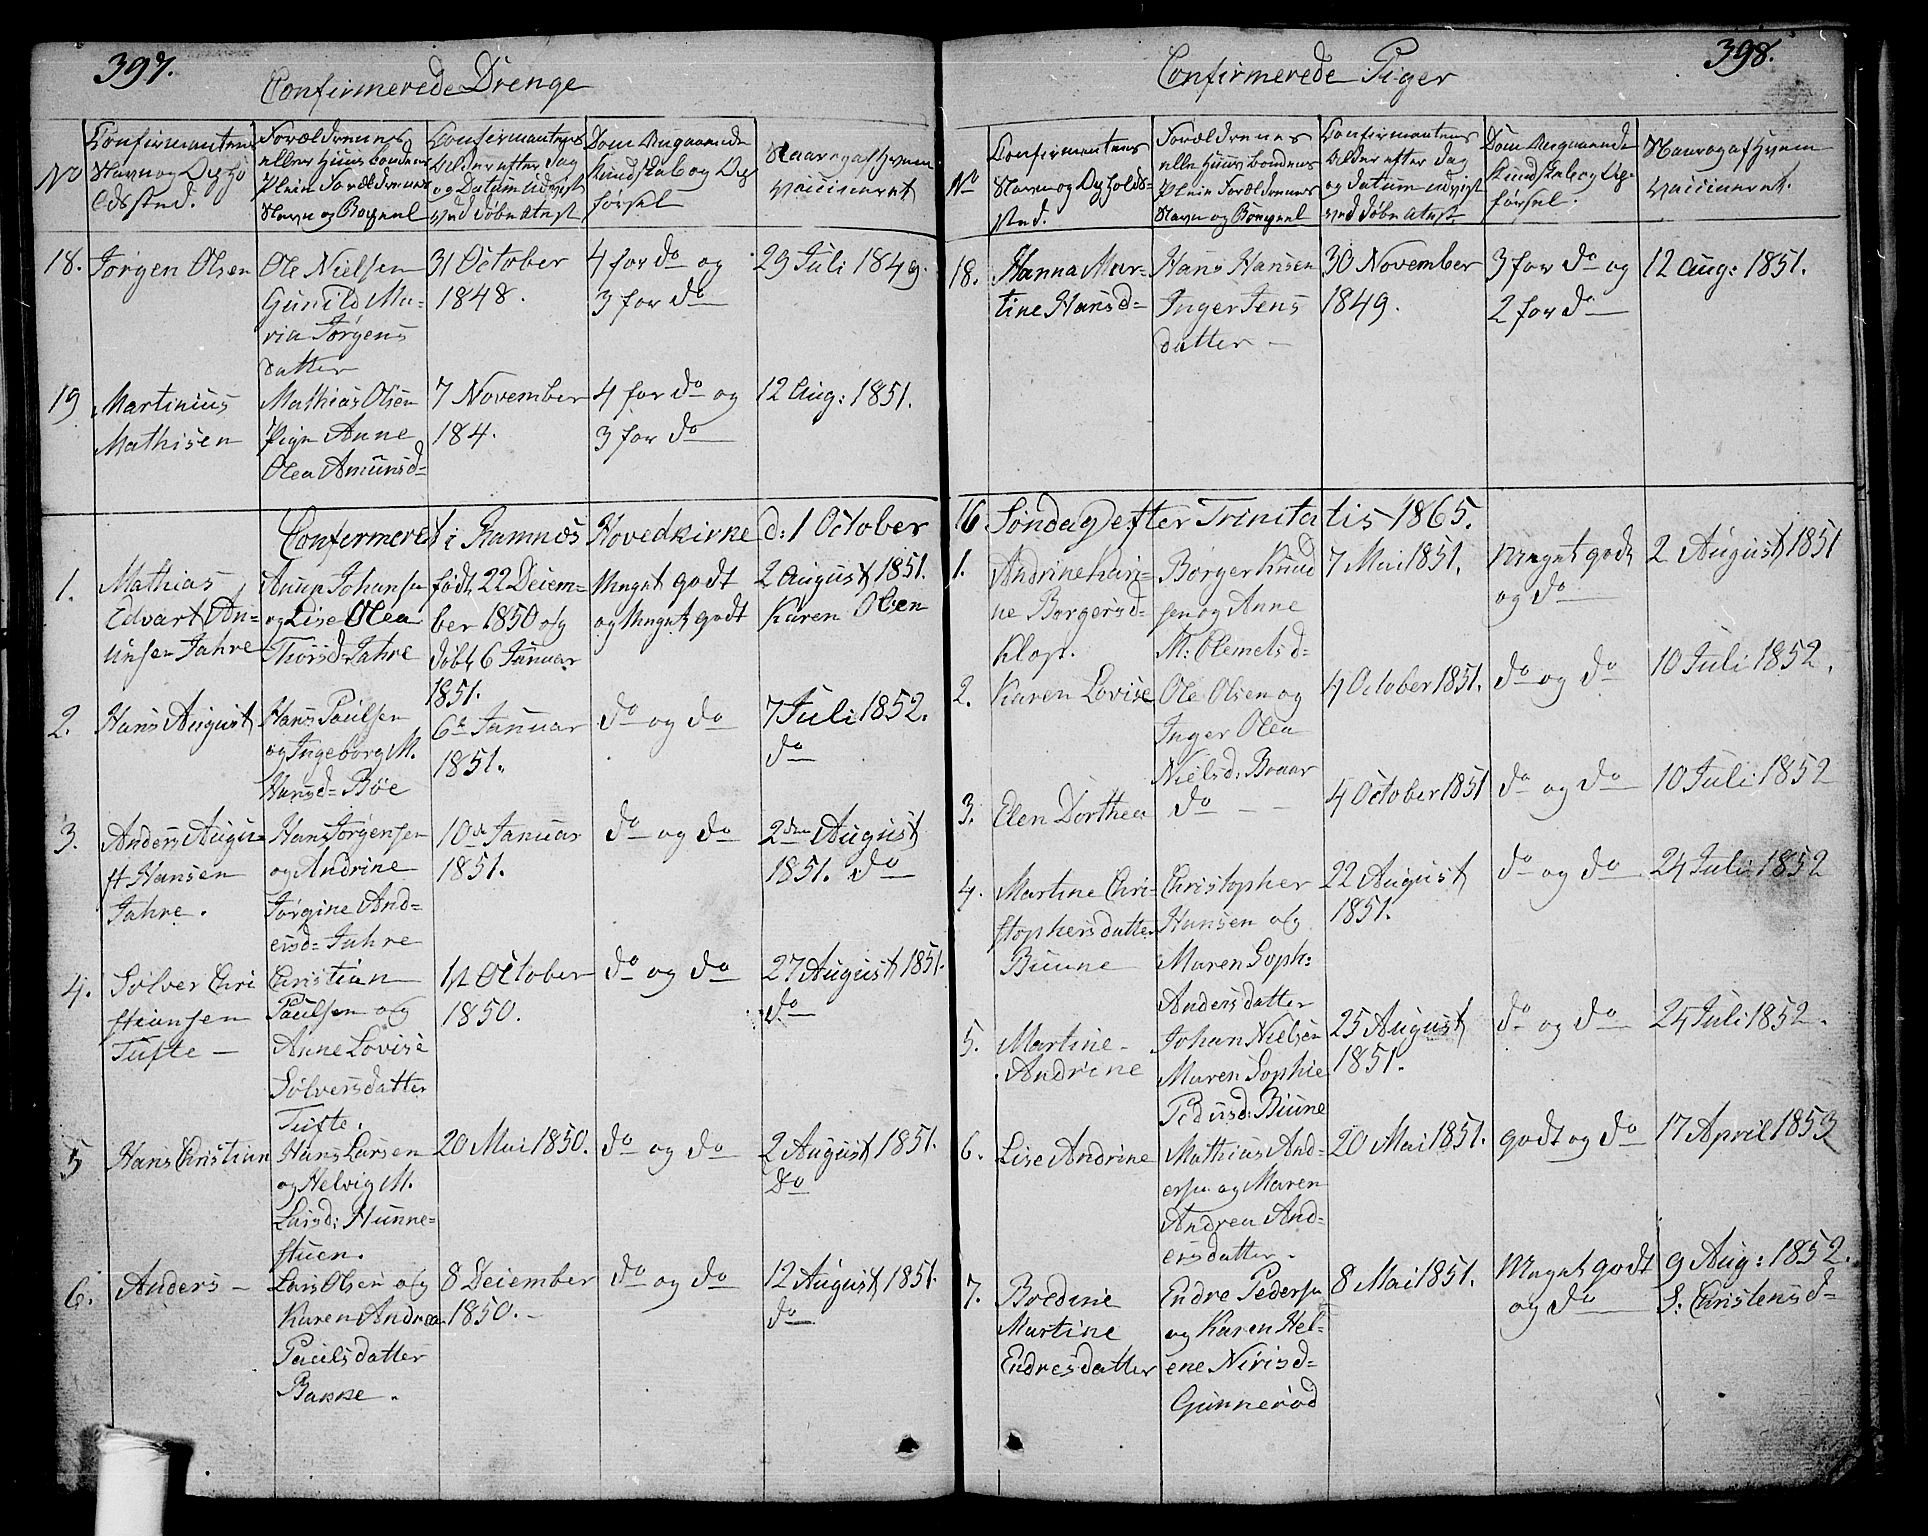 397.
Confirmerede Drenge
No
Confirmantens
Navn og Opho
ldsted.
Forældrenes
eller Huusbondens
Navn og Bopæel
Confirmantens
Alder efter Dag
og Datum udviist
ved Døbe Atest
Dom Angaaende
Kundskab og Op
førsel
Naar og af Hvem
vaccineret
18. Jørgen Olsen
Ole Nielsen
Gunild Ma-
ria Jørgens
datter
31 October
1848.
4 for do og
3 for do
29 Juli 1849.
19 Martinius
Mathisen
Mathias Olsen
Pige Anne
Olea Amunsd=
7 November
184.
4 for do og
3 for do
12 Aug: 1851.
Confermeret i Ramnes Hovedkirke d: 1 October
1. Mathias
Edvart An-
unsen Jahre
Anun Johansen
og Lise Olea
Thorsd= Jahre
født 22 Decem-
ber 1850 og
døbt 6 Januar
1851.
Meget godt
og Meget godt
2 August 1851.
Karen Olsen
2. Hans August
Hans Paulsen
og Ingeborg M.
Hansd= Bøe
6te Januar
1851.
do og do
7 Juli 1852.
do
3. Anders Augu
st Hansen
Jahre.
Hans Jørgensen
og Andrine
Jørgine And-
ersd= Jahre
10de Januar
1851.
do og do
2den August
1851. do
4. Sølver Chri
stiansen
Tufte -
Christian
Paulsen og
Anne Lovise
Sølversdatter
Tufte.
1st October
1850.
do og do
27 August 1851.
do
5 Hans Christian
Hans Larsen
og Helvig M.
Larsd: Hunne-
stuen.
20 Mai 1850.
do og do
2 August 1851.
do
6. Anders -
Lars Olsen og
Karen Andrea
Paulsdatter
Bakke.
8 December
1850.-
do og do
12 August 1851.
do
398.
Confirmerede Piger
No
Confirmantens
Navn og Opholds-
sted.
Forældrenes
eller Huusbondens
Navn og Bopæel
Confirmantens
Alder efter Dag
og Datum udviist
ved Døbe Atest
Dom Angaaende
Kundskab og Op-
førsel.
Naar og af Hvem
vaccineret.
18. Hanna Mar-
tine Hansd=
Hans Hansen
Inger Jens
datter -
30 November
1849.
3 for do og
2 for do
12 Aug: 1851.
16 Søndag efter Trinitatis 1865.
1. Andrine Kari-
ne Borgersd=
Klop.
Borger Knud
sen og Anne
M: Olemelsd=
7 Mai 1851.
Meget godt
og do
2 August 1851
2. Karen Lovise
Ole Olsen og
Inger Olea
Nielsd: Braar
4 October 1851.
do og do
10 Juli 1852.
3. Elen Dorthea
do - -
4 October 1851
do og do
10 Juli 1852
4. Martine Chri-
stophersdatter
Buune
Christopher
Hansen og
Maren Soph:
Andersdatter
22 August
1851.
do og do
24 Juli 1852
5. Martine-
Andrine
Johan Nielsen
Maren Sophie
Pedersd: Buune
25 August
1851.
do og do
24 Juli 1852.
6. Lise Andrine
Mathias And-
ersen og Maren
Andrea And-
ersdatter.
20 Mai 1851.
godt og do
17 April 1853
7. Bredine
Martine
Endresdatter
Endre Pedersen
og Karen Hel-
ene Nirisd=
Gunnerød
8 Mai 1851.
Meget godt
og do
9 Aug: 1852.
S. Christensd=